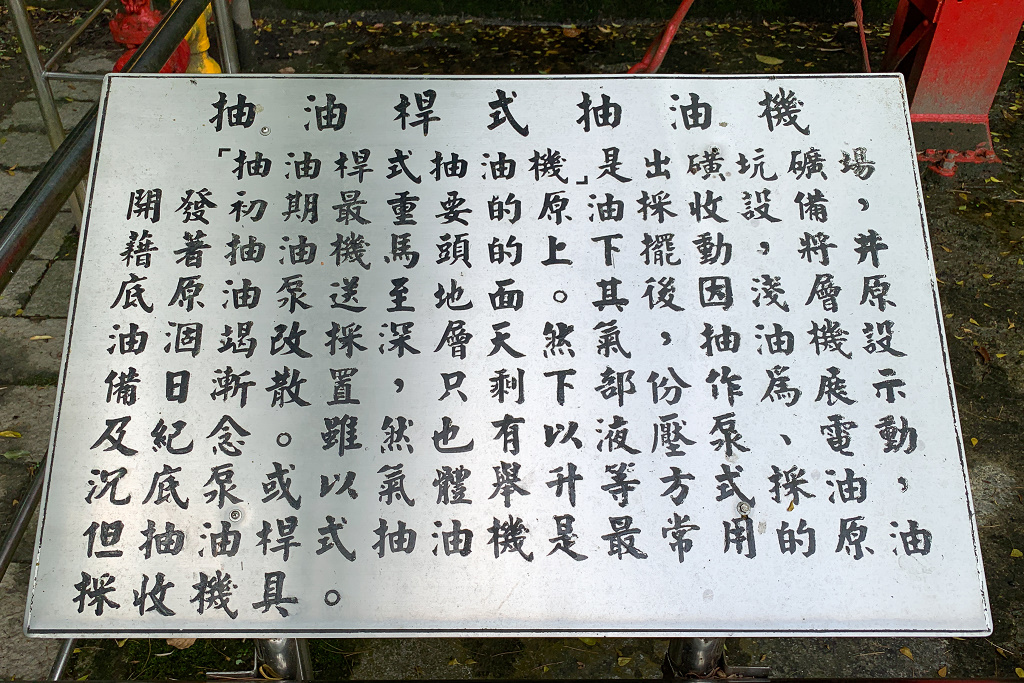 抽油桿式抽油機
「抽油桿式抽油機」是出磺坑礦場
開發初期最重要的原油採收設備，
藉著抽油機馬頭的上下擺動，將井
底原油泵送至地面。其後因淺層原
油涸竭改採深層天然氣，抽油機設
備日漸散置，只剩下部份作為展示
及紀念。雖然也有以液壓泵、電動
沉底泵或以氣體舉升等方式採油，
但抽油桿式抽油機是最常用的原油
採收機具。